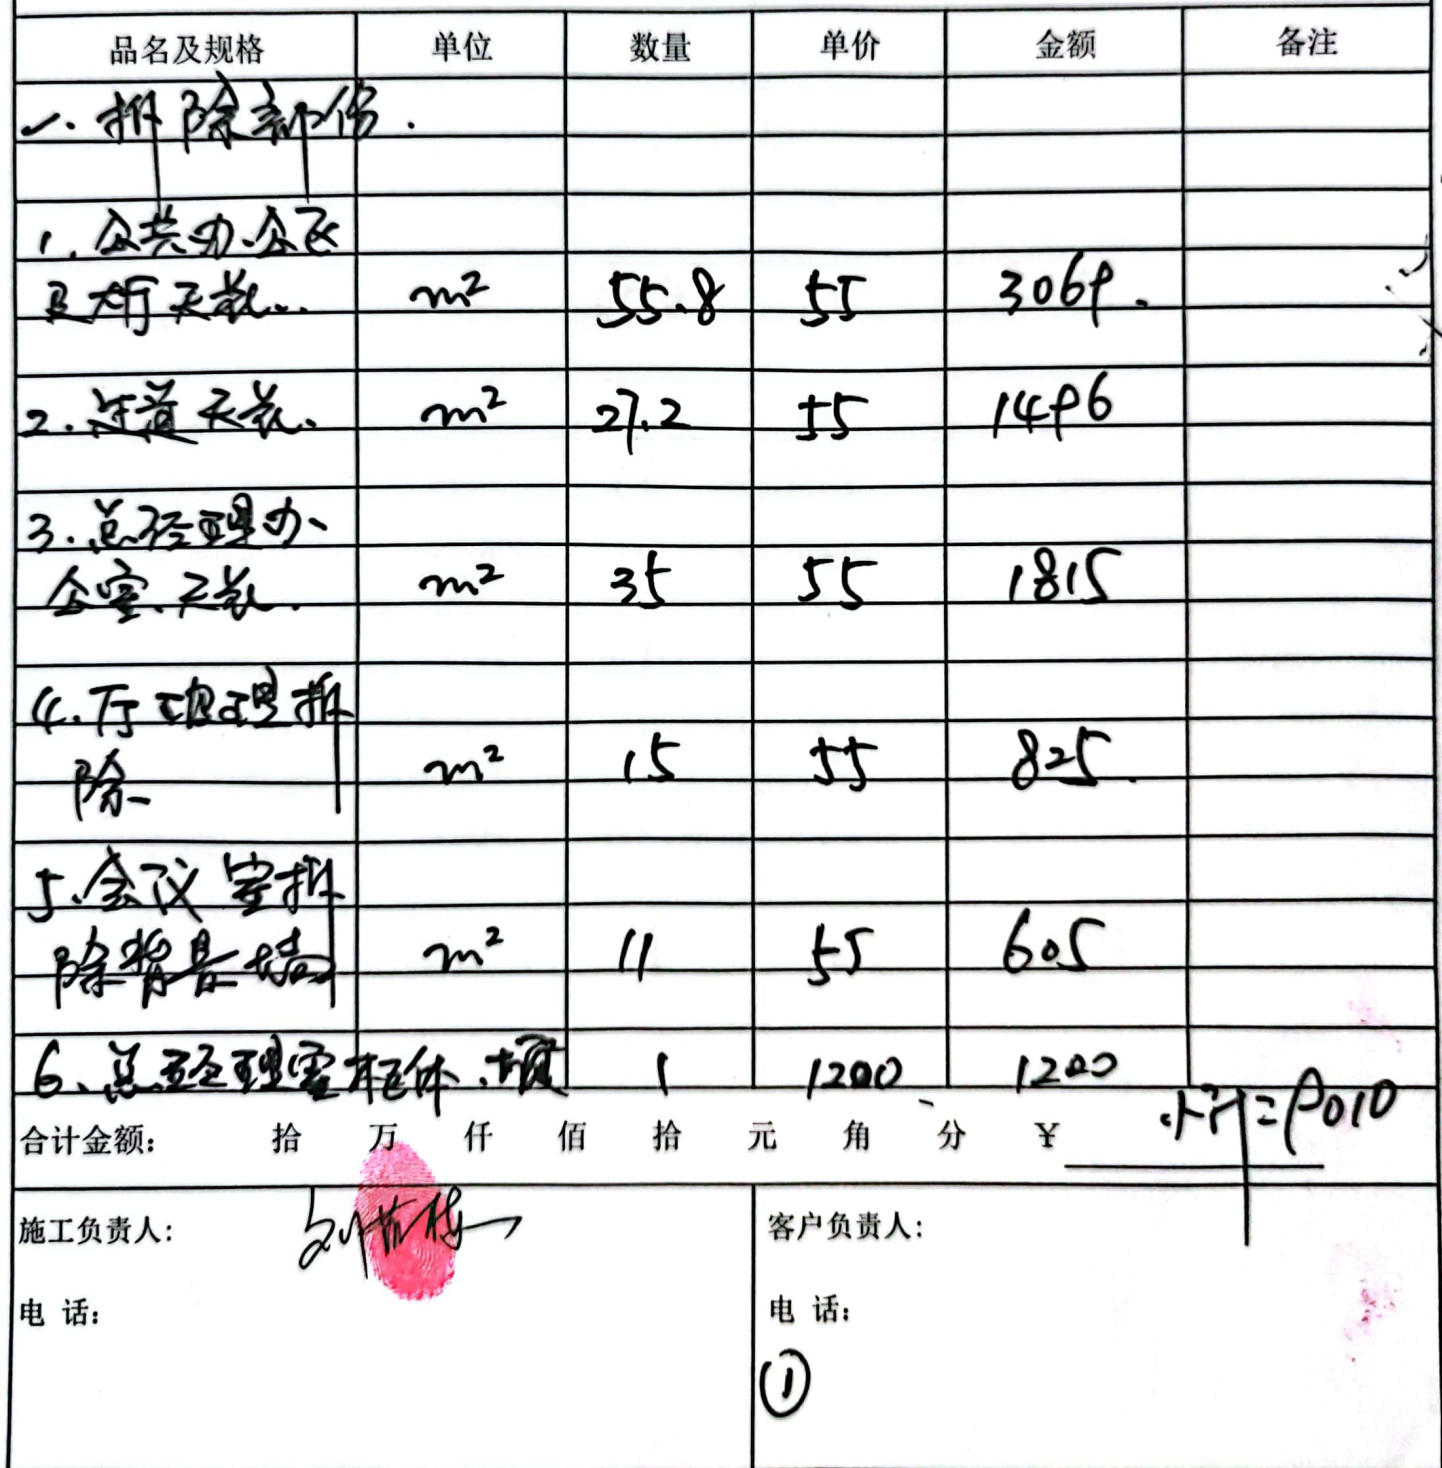 品名及规格 单位 数量 单价 金额 备注
一. 拆除部份.
1. 公共办公区
及大厅天花.. m² 55.8 55 3069.
2. 过道天花. m² 27.2 55 1496
3. 总经理办
公室.天花. m² 35 55 1815
4. 厅 理拆
除 m² 15 55 825.
5. 会议室拆
除背景墙 m² 11 55 605
6. 总经理室柜体. 1 1200 1200
合计金额: 拾 万 仟 佰 拾 元 角 分 ¥ 小计=9010
施工负责人: 客户负责人:
电 话: 电 话:
①